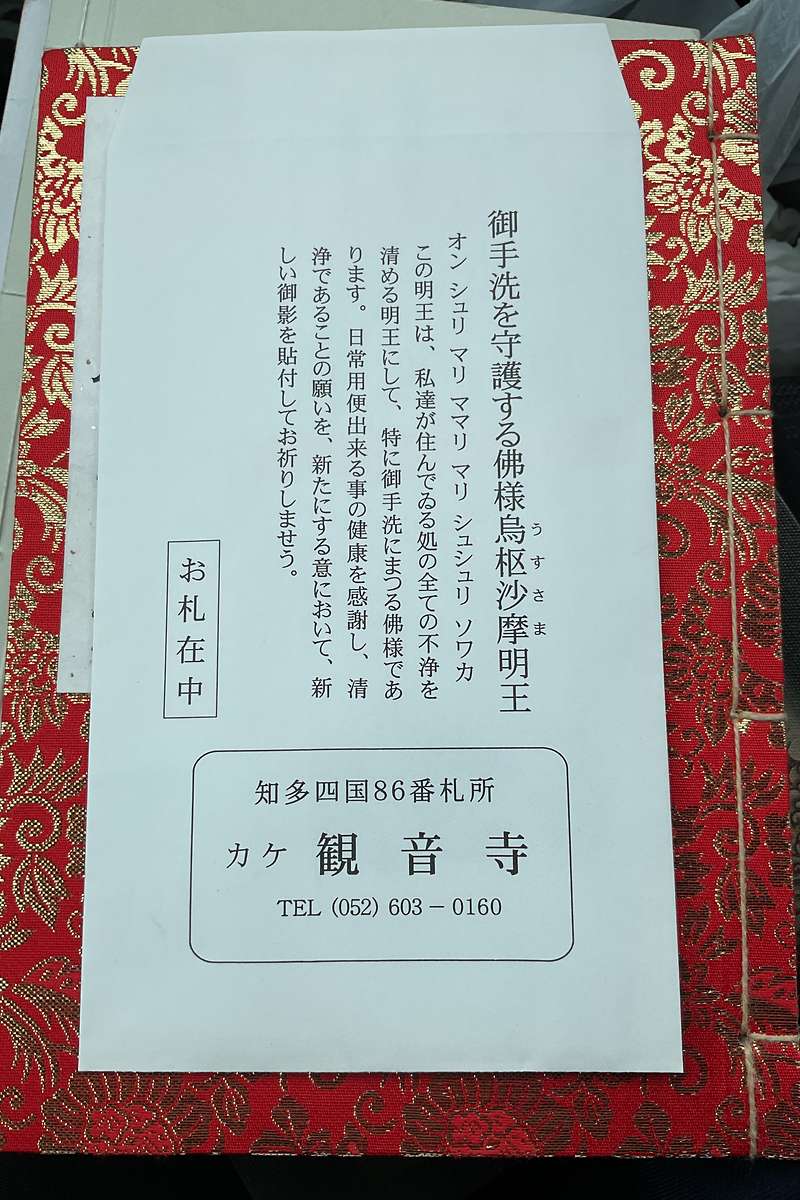 御手洗を守護する佛様烏枢沙摩明王
うすさま
オン シュリ マリ ママリ マリ シュシュリ ソワカ
この明王は、私達が住んでゐる処の全ての不浄を
清める明王にして、特に御手洗にまつる佛様であ
ります。日常用便出来る事の健康を感謝し、清
浄であることの願いを、新たにする意において、新
しい御影を貼付してお祈りしませう。
お札在中
知多四国86番札所
カケ 観音寺
TEL (052) 603－0160